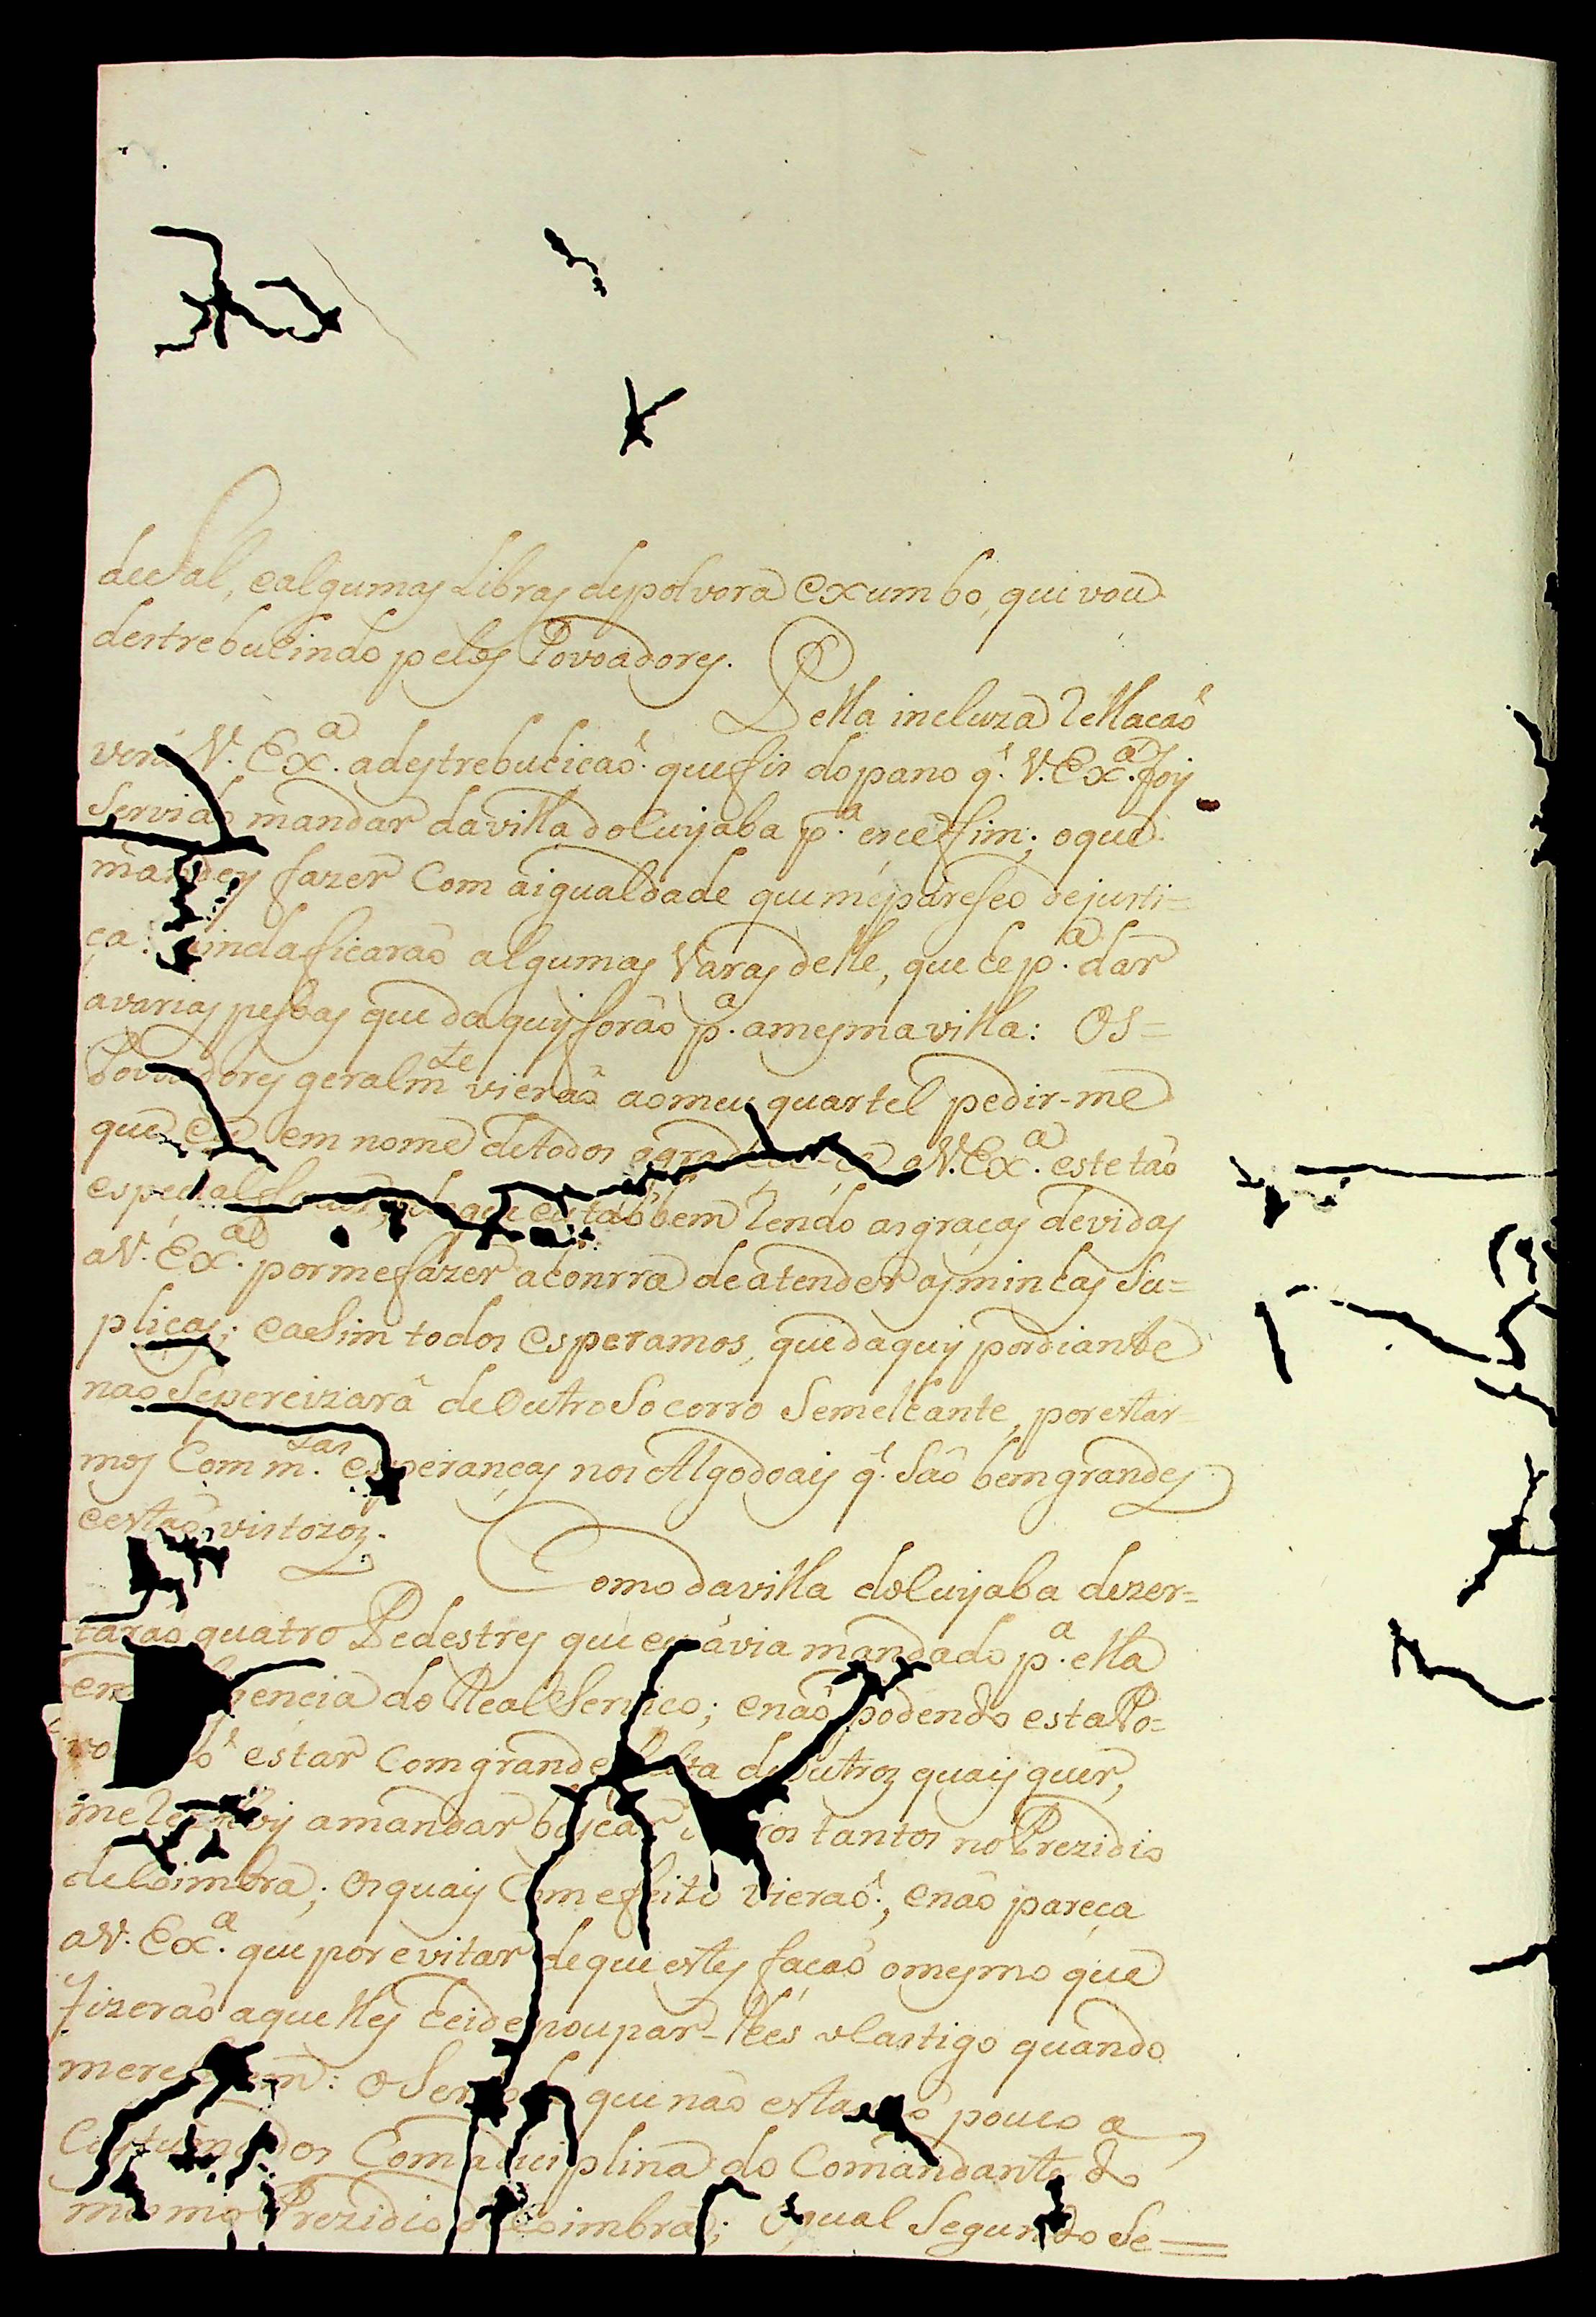 de Sal, e algumas Libras de polvora e xumbo, que vou
destrebuhindo pelos Povoadores.
Pella incluza Rellacaõ
verá V. Ex.ª a destrebuhicaõ que fis do pano q̃. V. Ex.ª foy
Servido mandar da villa do Cuyaba p.ª esse fim; o que
mandey fazer Com a igualdade que me pareseo de justi=
ça: ainda ficaraõ algumas Varas delle, que he p.ª dar
a varias pesoas que da quy foraõ p.ª a mesma villa: Os=
Povoadores geralm.te vieraõ ao meu quartel pedir-me
que eu em nome de todos V. Ex.ª este taõ
especial que eu taõbem Rendo as graças devidas
a V. Ex.ª por me fazer a honrra de atender as minhas Su=
plicas; e a Sim todos esperamos, que da quy por diante
naõ Se percizará de Outro Socorro Semelhante, por estar=
mos Com m.tas esperanças nos Algodoais q̃. Saõ bem grandes
e estaõ vistozos.
Como da villa do Cuyaba dezer=
taraõ quatro Pedestres que eu avia mandado p.ª ella
em do Real Serviço; e naõ podendo esta Po=
voaçaõ estar Com grande falta de Outros quais quer,
me a mandar buscar outros tantos no Prezidio
de Coimbra; Os quais Com efeito vieraõ, e naõ pareça
a V. Ex.ª que por evitar de que estes facaõ o mesmo que
fizeraõ aquelles hei de poupar-lhes o Castigo quando
merecerem: que naõ estaõ pouco a
Costumados Com a diciplina do Comandante do
mesmo Prezidio de Coimbra; O qual Segundo Se=